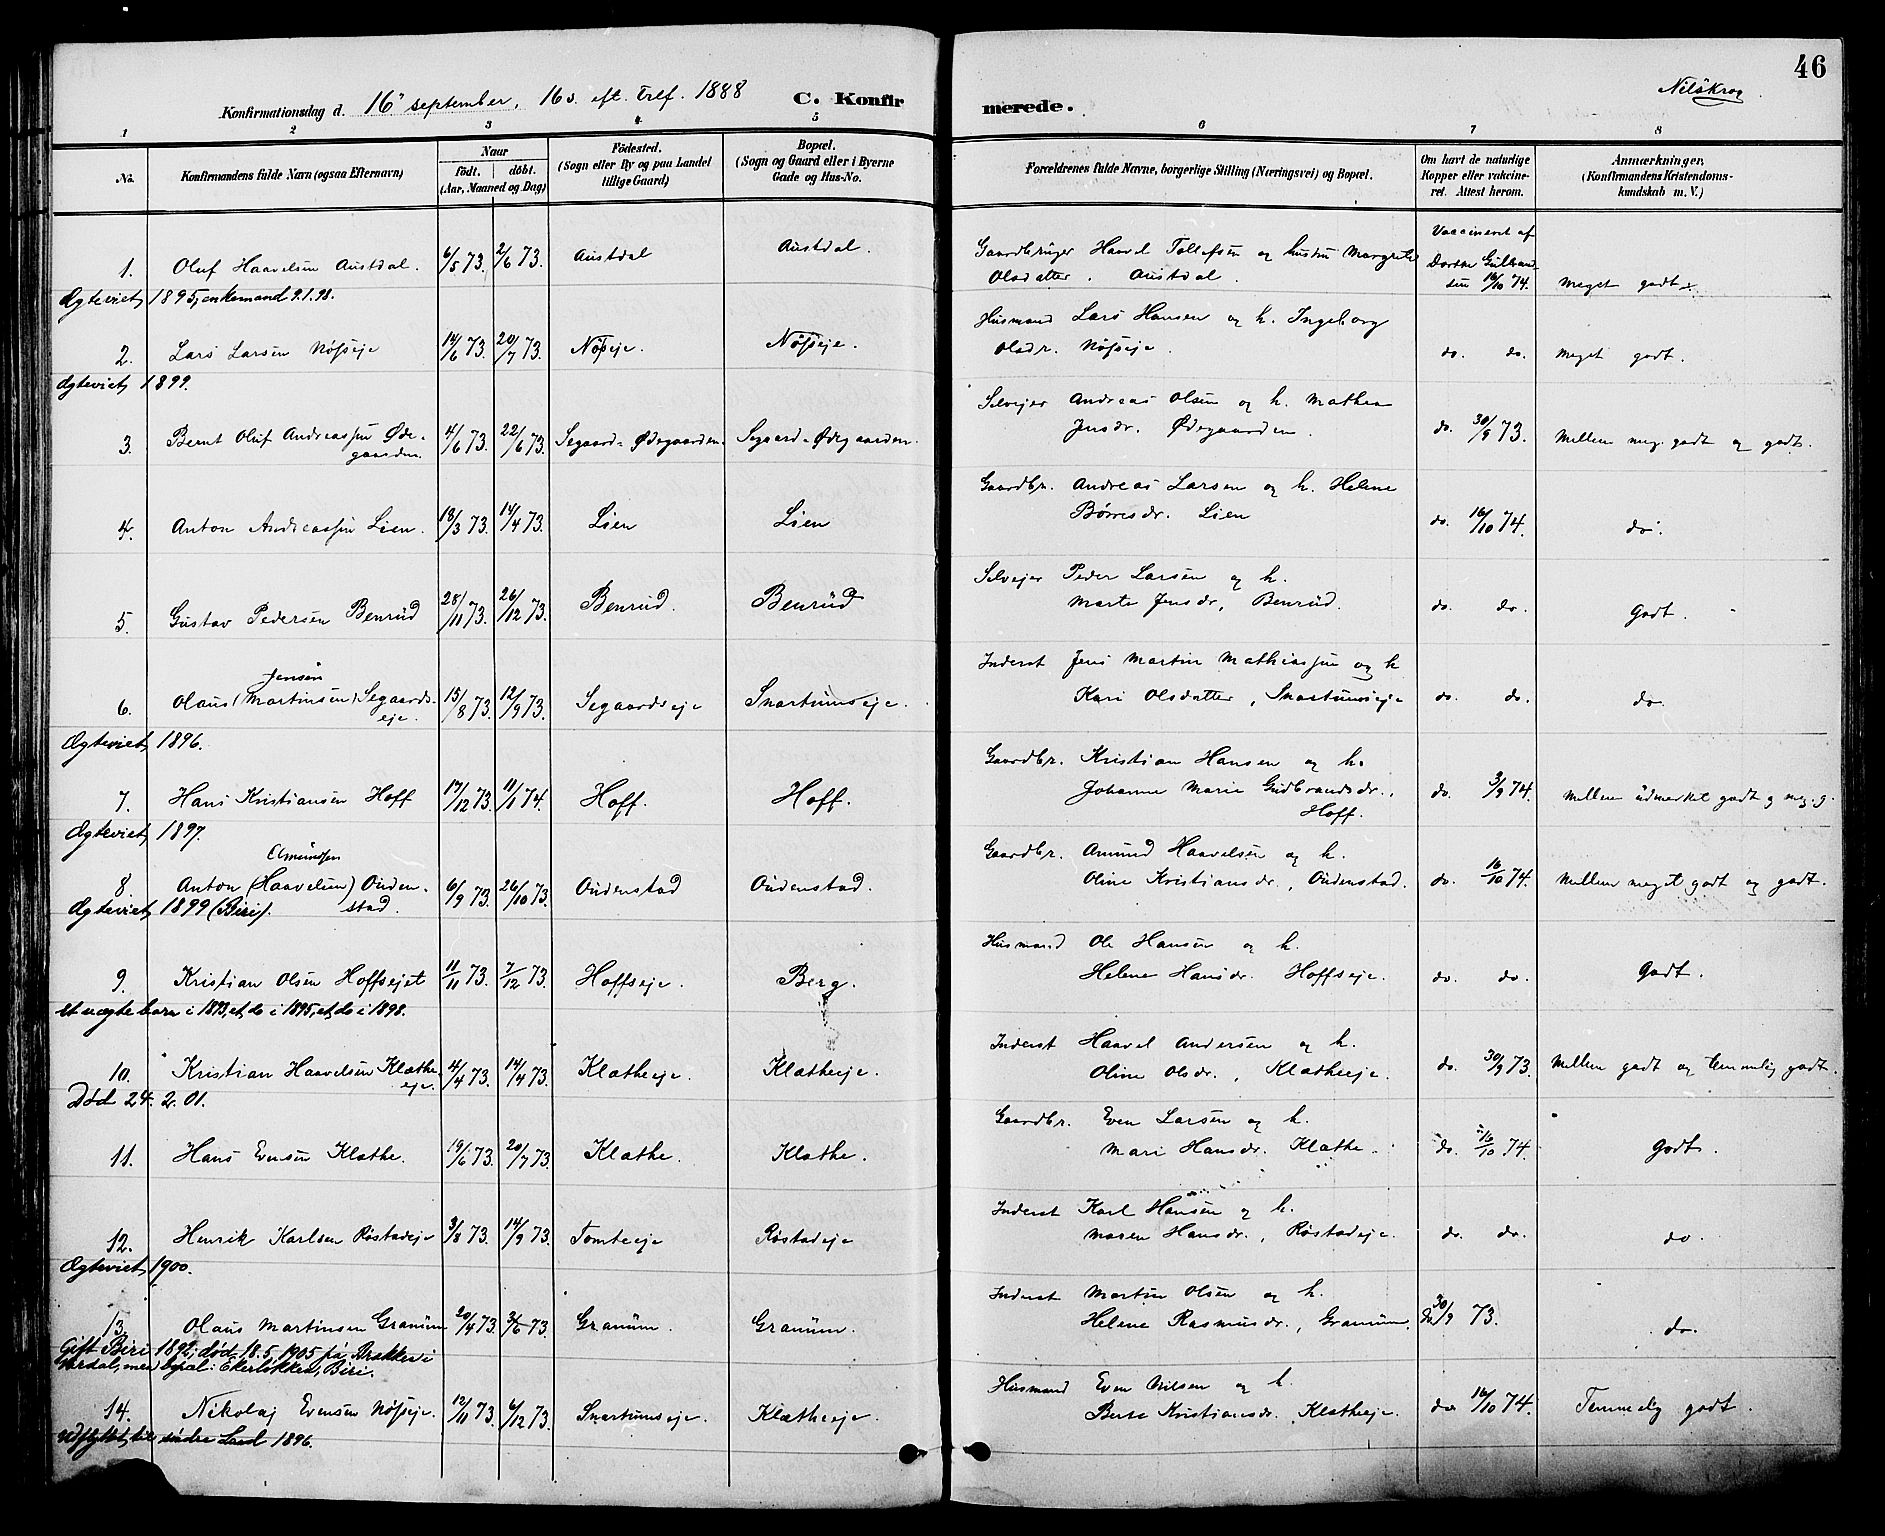 46
Nilskrog
Konfirmationsdag d. 16de september, 16 s. eft. Tref. 1888 C. Konfirmerede.
1 2 3 4 5 6 7 8
No.
Konfirmandens fulde Navn (ogsaa Efternavn)
Naar
født. døbt.
(Aar, Maaned og Dag)
Fødested.
(Sogn eller By og paa Landet
tillige Gaard)
Bopæl.
(Sogn og Gaard eller i Byerne
Gade og Hus-No.
Forældrenes fulde Navne, borgerlige Stilling (Næringsvei) og Bopæl.
Om havt de naturlige
Kopper eller vakcine-
ret. Attest herom.
Anmærkninger,
(Konfirmandens Kristendoms-
kundskab m. V.)
1. Oluf Haavelsen Austdal. 6/5 73. 2/6 73. Austdal Austdal. Gaardbruger Haavel Tollefsen og hustru Margrete
Olsdatter. Austdal. Vaccineret af Dortea Gulbrandsen 16/10 74. meget godt.
Ægteviet 1895, enkemand 9.1.98.
2. Lars Larsen Nøsseje 14/6 73. 20/7 73. Nøsseje. Nøsseje. Husmand Lars Hansen og h. Ingeborg
Olsdr. Nøsseje. do. do. meget godt.
Ægteviet 1899.
3. Bernt Oluf Andreassen Øde-
gaarden 4/6 73. 22/6 73. Segaard-Ødegaarden. Segaard-Ødegaarden. Selvejer Andreas Olsen og h. Mathea
Jensdr. Ødegaarden. do. 30/9 73. Mellem meg. godt og godt.
4. Anton Andreassen Lien. 18/3 73. 14/4 73. Lien Lien Gaardbr. Andreas Larsen og h. Helene
Børresdr. Lien do. 16/10 74. do.
5. Gustav Pedersen Benrud 28/11 73. 26/12 73. Benrud. Benrud Selvejer Peder Larsen og h.
Marte Jensdr, Benrud. do. do. Godt.
Jensen
6. Olaus (Martinsen) Segaards-
eje. 15/8 73. 12/9 73. Segaardseje Snartumseje. Inderst Jens Martin Mathiassen og h
Kari Olsdatter, Snartumseje do. do. do.
Ægteviet 1896.
7. Hans Kristiansen Hoff 17/12 73. 11/1 74. Hoff. Hoff. Gaardbr. Kristian Hansen og h.
Johanne Marie Gudbrandsdr.,
Hoff. do. 3/9 74. Mellem udmerket godt og meg. g.
Ægteviet 1897.
Amundsen
8. Anton (Haavelsen) Ouden-
stad. 6/9 73. 26/10 73. Oudenstad Oudenstad. Gaardbr. Amund Haavelsen og h.
Oline Kristiansdr., Oudenstad. do. 16/10 74. Mellem meget godt og godt.
Ægteviet 1899 (Biri).
9. Kristian Olsen Hoffsejet 11/11 73. 7/12 73. Hoffseje. Berg. Husmand Ole Hansen og h.
Helene Hansdr. Hoffseje. do. do. Godt.
et uægte barn i 1893, et do i 1895, et do i 1898.
10. Kristian Haavelsen Klæthe-
eje. 4/4 73. 14/4 73. Klætheeje. Klætheeje. Inderst Haavel Andersen og h.
Oline Olsdr., Klætheeje. do. 30/9 73. Mellem godt og temmelig godt.
Død 24. 2. 01.
11. Hans Evensen Klæthe. 19/6 73. 20/7 73. Klæthe. Klæthe. Gaardbr. Even Larsen og h.
Mari Hansdr. Klæthe. do. 16/10 74. Godt.
12. Henrik Karlsen Røstadeje 3/8 73. 14/9 73. Tomteeje Røstadeje Inderst Karl Hansen og h.
Maren Hansdr., Røstadeje. do. do. do.
Ægteviet 1900.
13. Olaus Martinsen Granum 20/4 73. 3/6 73. Granum. Granum. Inderst Martin Olsen og h.
Helene Rasmusdr., Granum. do. 30/9 73. do.
Gift Biri 1892; død 18.5.1905 på Brakkes i
Vardal, med bopæl: Ekerløkken, Biri.
14. Nikolaj Evensen Nøsseje. 12/11 73. 6/12 73. Snartumseje. Klætheeje. Husmand Even Nilsen og h.
Berte Kristiansdr., Klætheeje. do. 16/10 74. Temmelig godt.
udflyttet til søndre Land 1896.